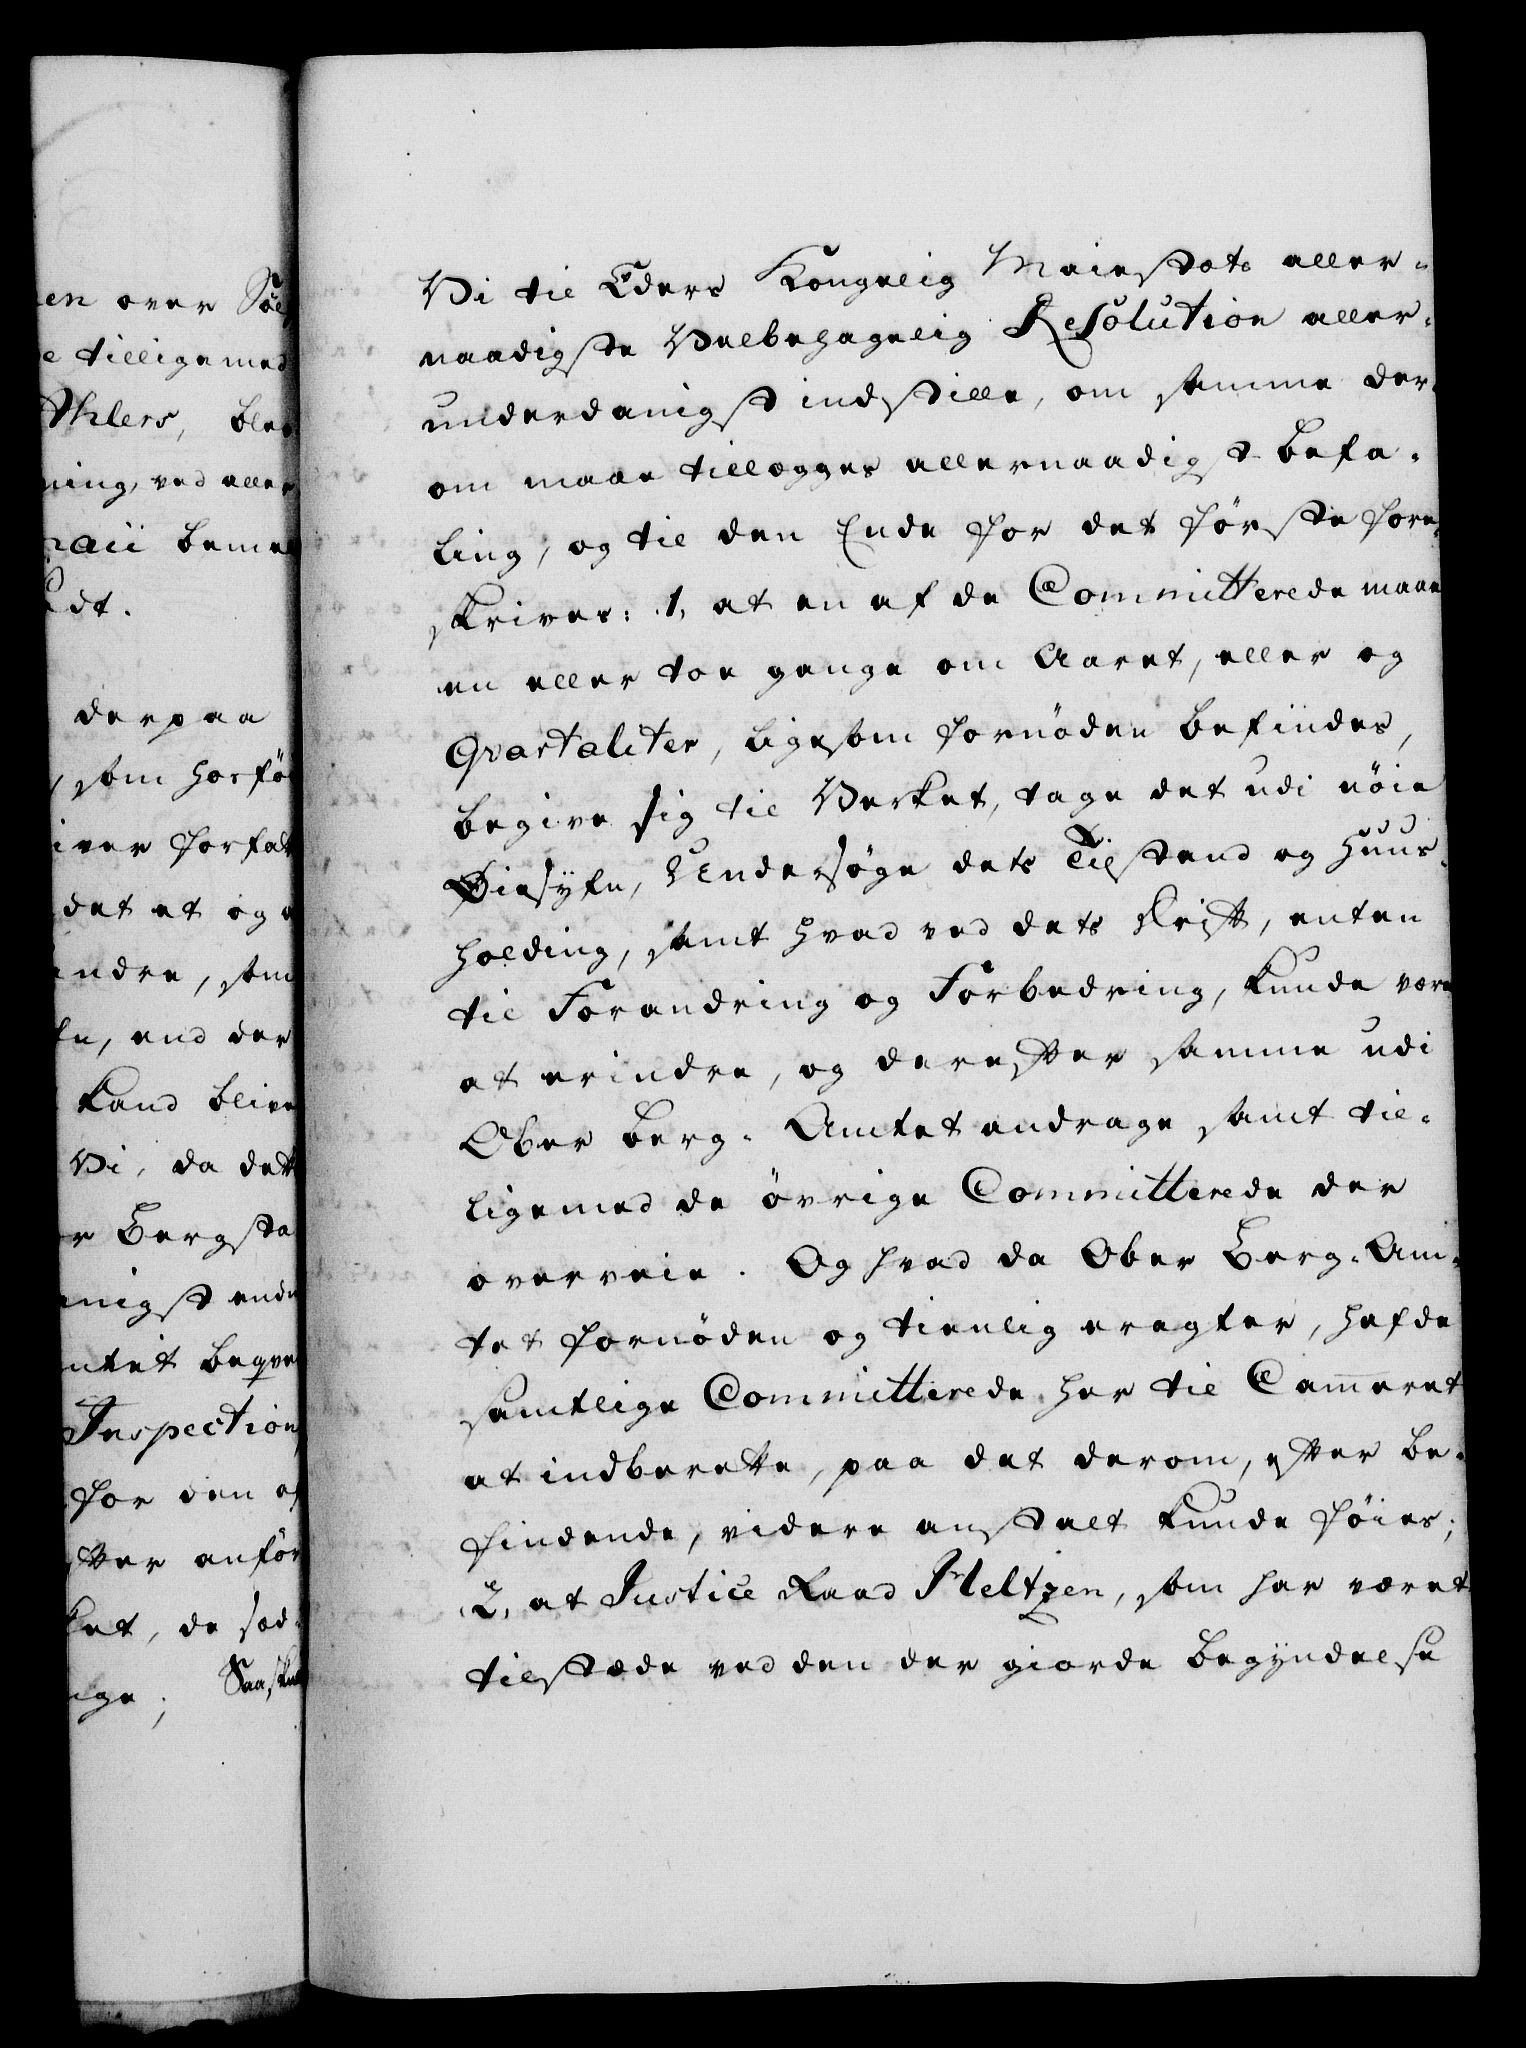 en over Søl
e tilligemed
Ahlers, ble
ning, ved aller
maii bemel
dt.
derpaa
, som hosfø
iver forfat
det et og a
andre, som
end der
kand blive
Vi, da dett
r Bergsta
nigst ende
mtet beqve
Inspection
for den af
fter anfør
ket, de sæd-
ige; Saaskul
Vi til Eders Kongelig Maiestæts aller-
naadigste Velbehagelig Resolution aller-
underdanigst indstille, om samme der-
om maae tillægges allernaadigst Befa-
ling, og til den Ende for det første fore-
skrives: 1, at en af de Committerede maae
en eller toe gange om Aaret, eller og
Qvartaliter, ligesom fornöden befindes,
begive sig til Verket, tage det udi nöie
Öiesyfn, Undersøge dets Tilstand og Huus-
holding, samt hvad ved dets Drift, enten
til Forandring og Forbedring, kunde være
at erindre, og derefter samme udi
Ober Berg-Amtet andrage samt til-
ligemed de övrige Committerede der
overveie. Og hvad da Ober Berg-Am-
tet fornöden og tienlig eragter, hafde
samtlige Committerede her til Cam̅eret
at indberette, paa det derom, efter be-
findende, videre anstalt kunde föies;
2, at Justice Raad Heltzen, som har været
tilstæde ved den der giorde Begyndelse